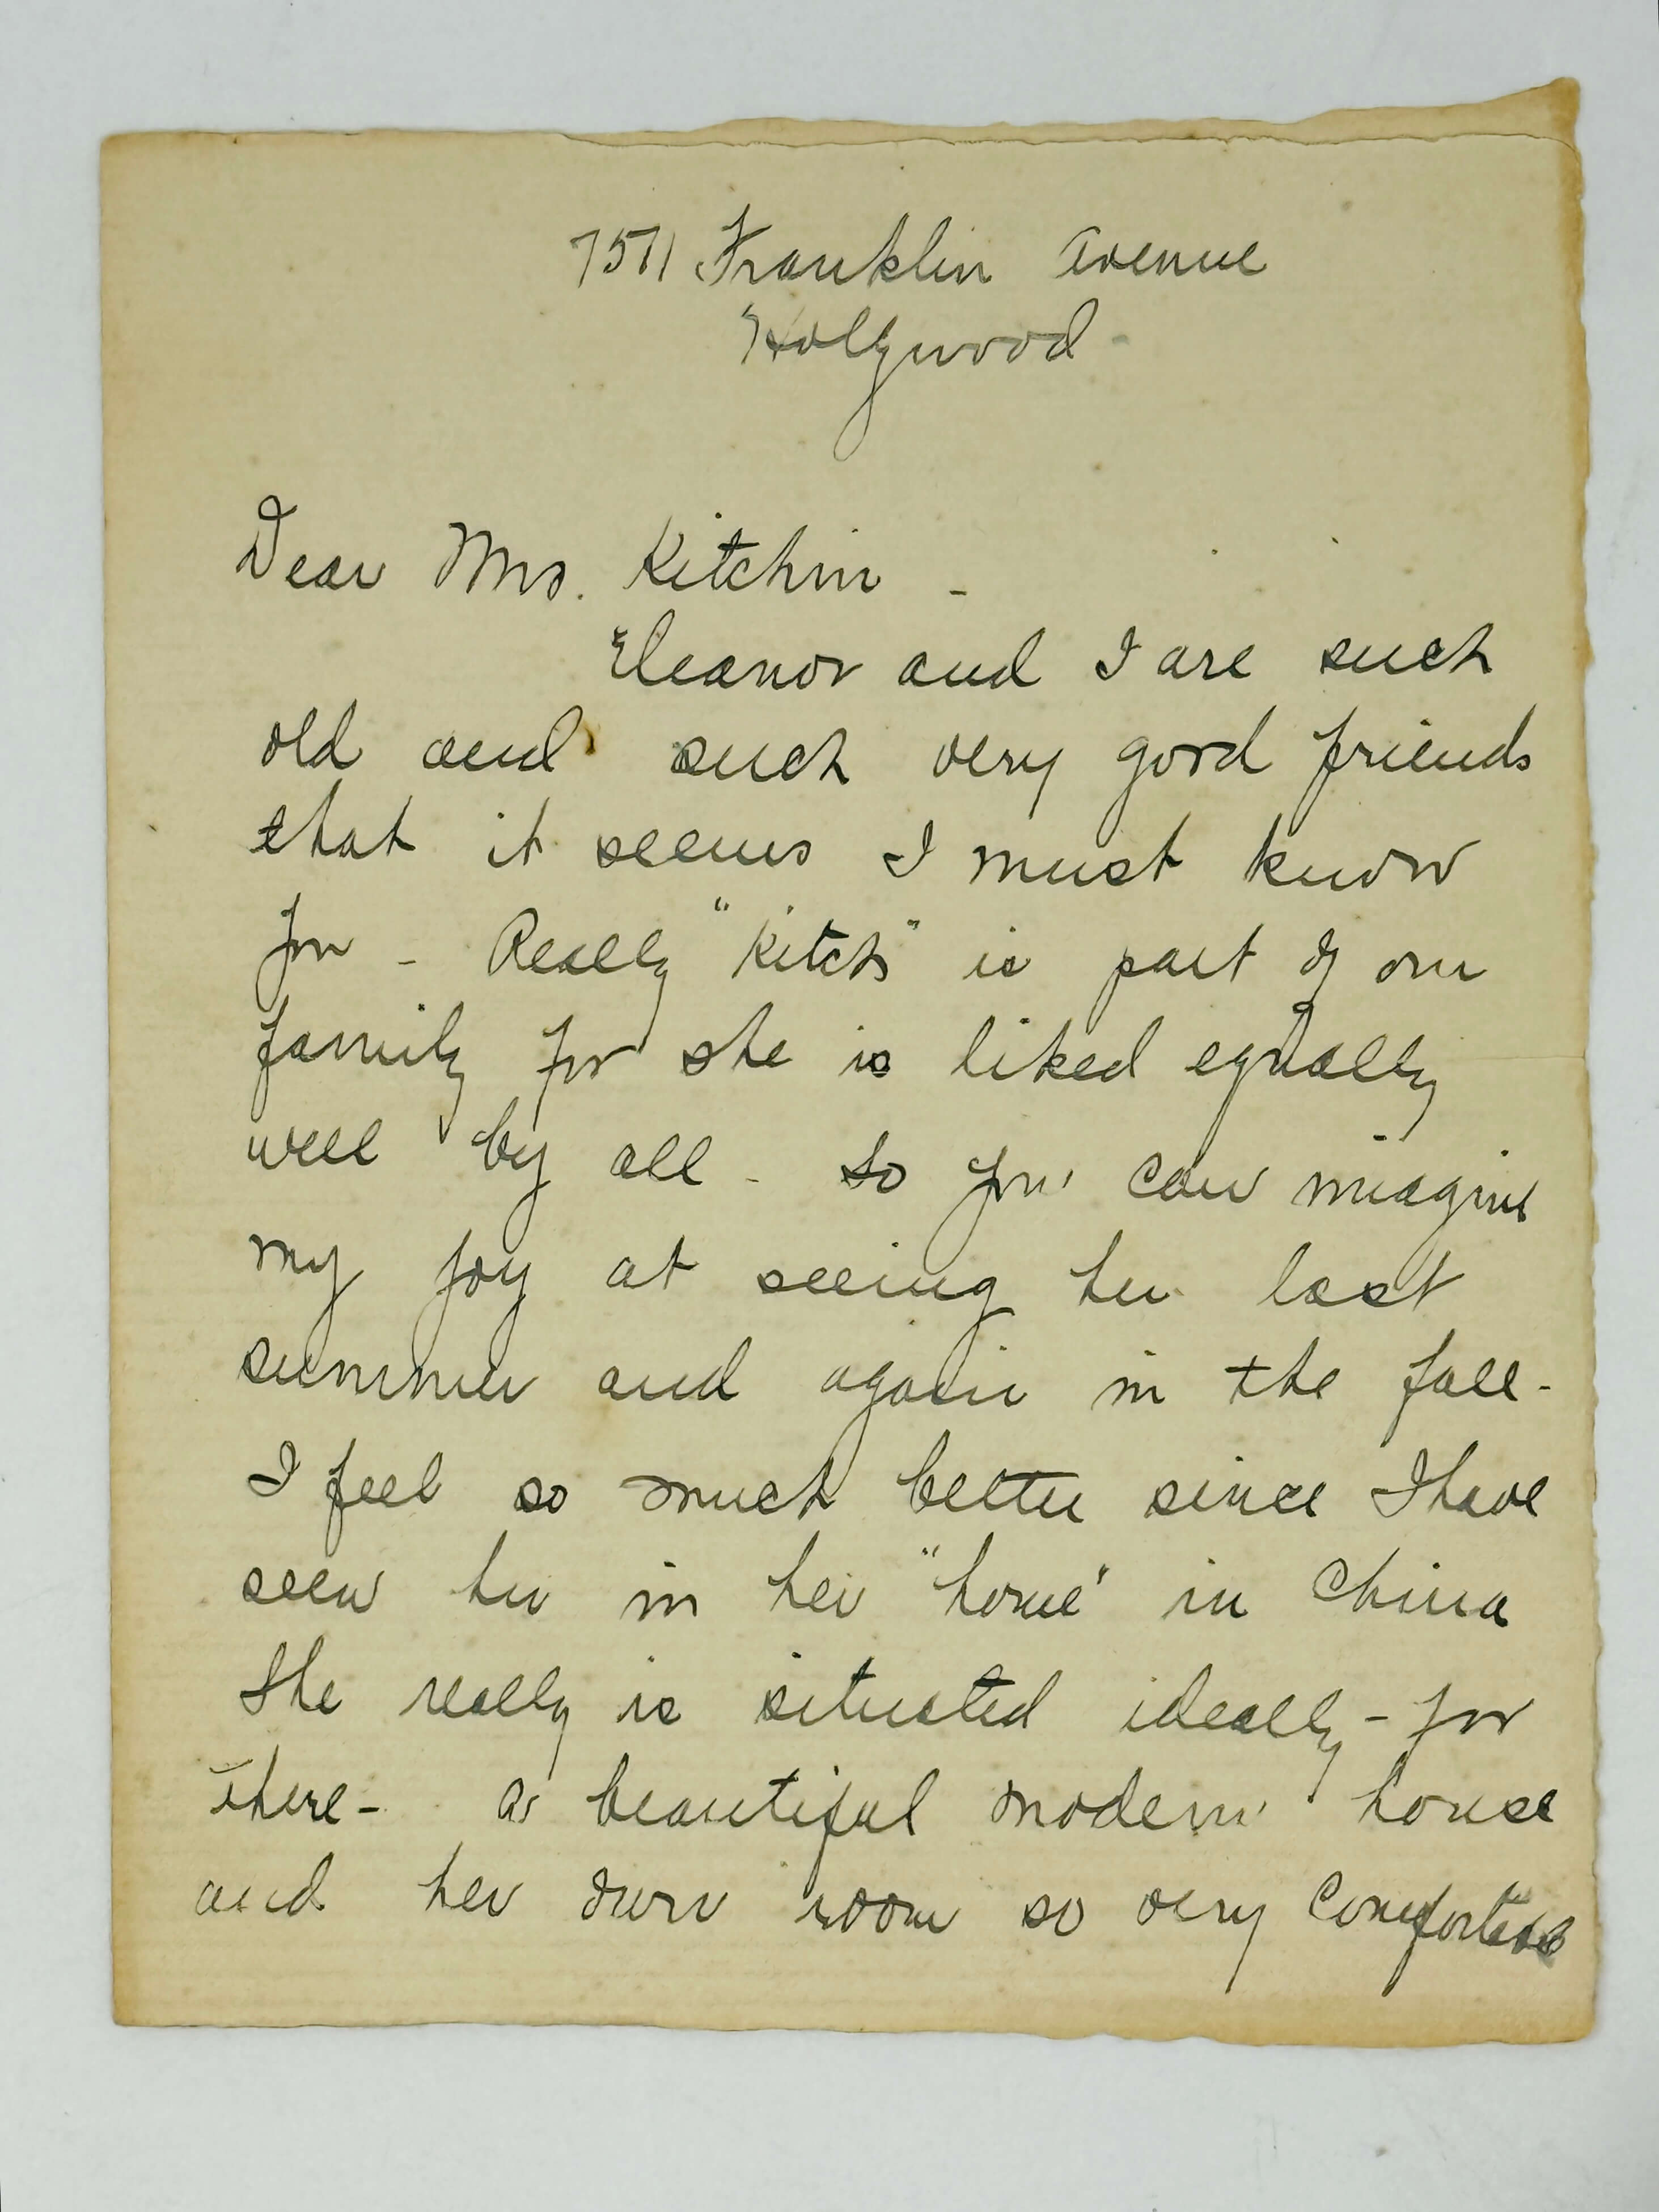 7571 Franklin Avenue
Hollywood -
Dear Mrs. Kitchin -
Eleanor and I are such
old and such very good friends
that it seems I must know
you - Really "Kitch" is part of our
family for she is liked equally
well by all - So you can imagine
my joy at seeing her last
summer and again in the fall -
I feel so much better since I have
seen her in her "home" in China
She really is situated ideally - for
there - a beautiful modern house
and her own room so very comfortable